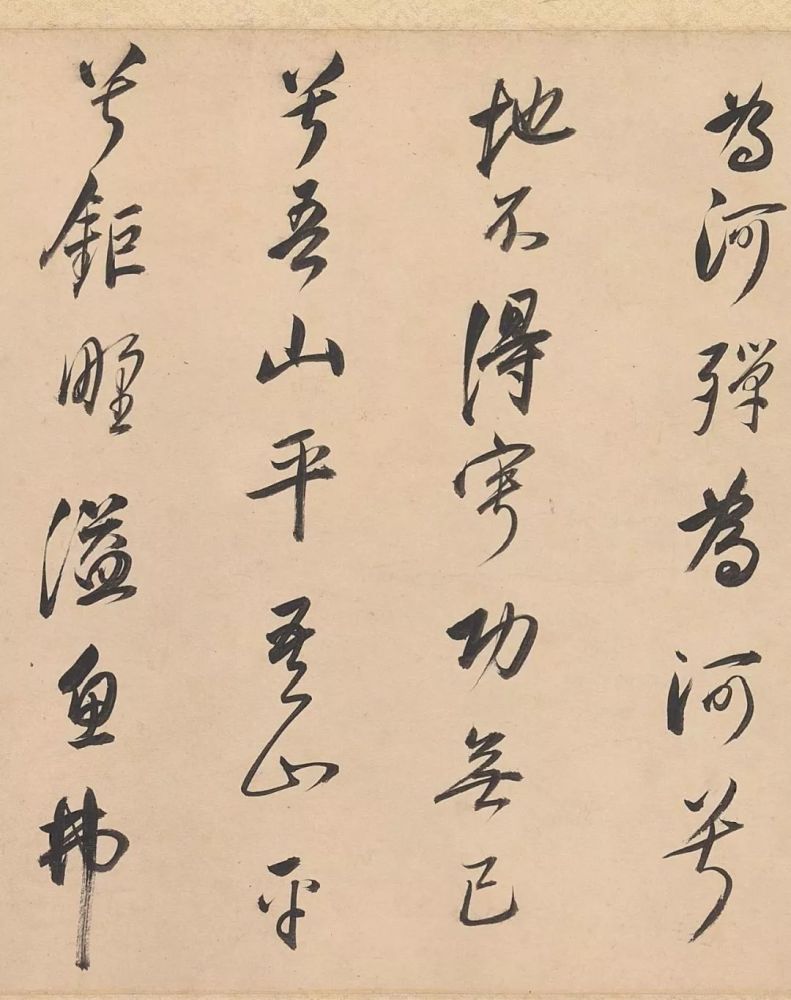 為河殫為河兮
地不得寧功無已
時兮吾山平吾山平
兮鉅野溢魚弗